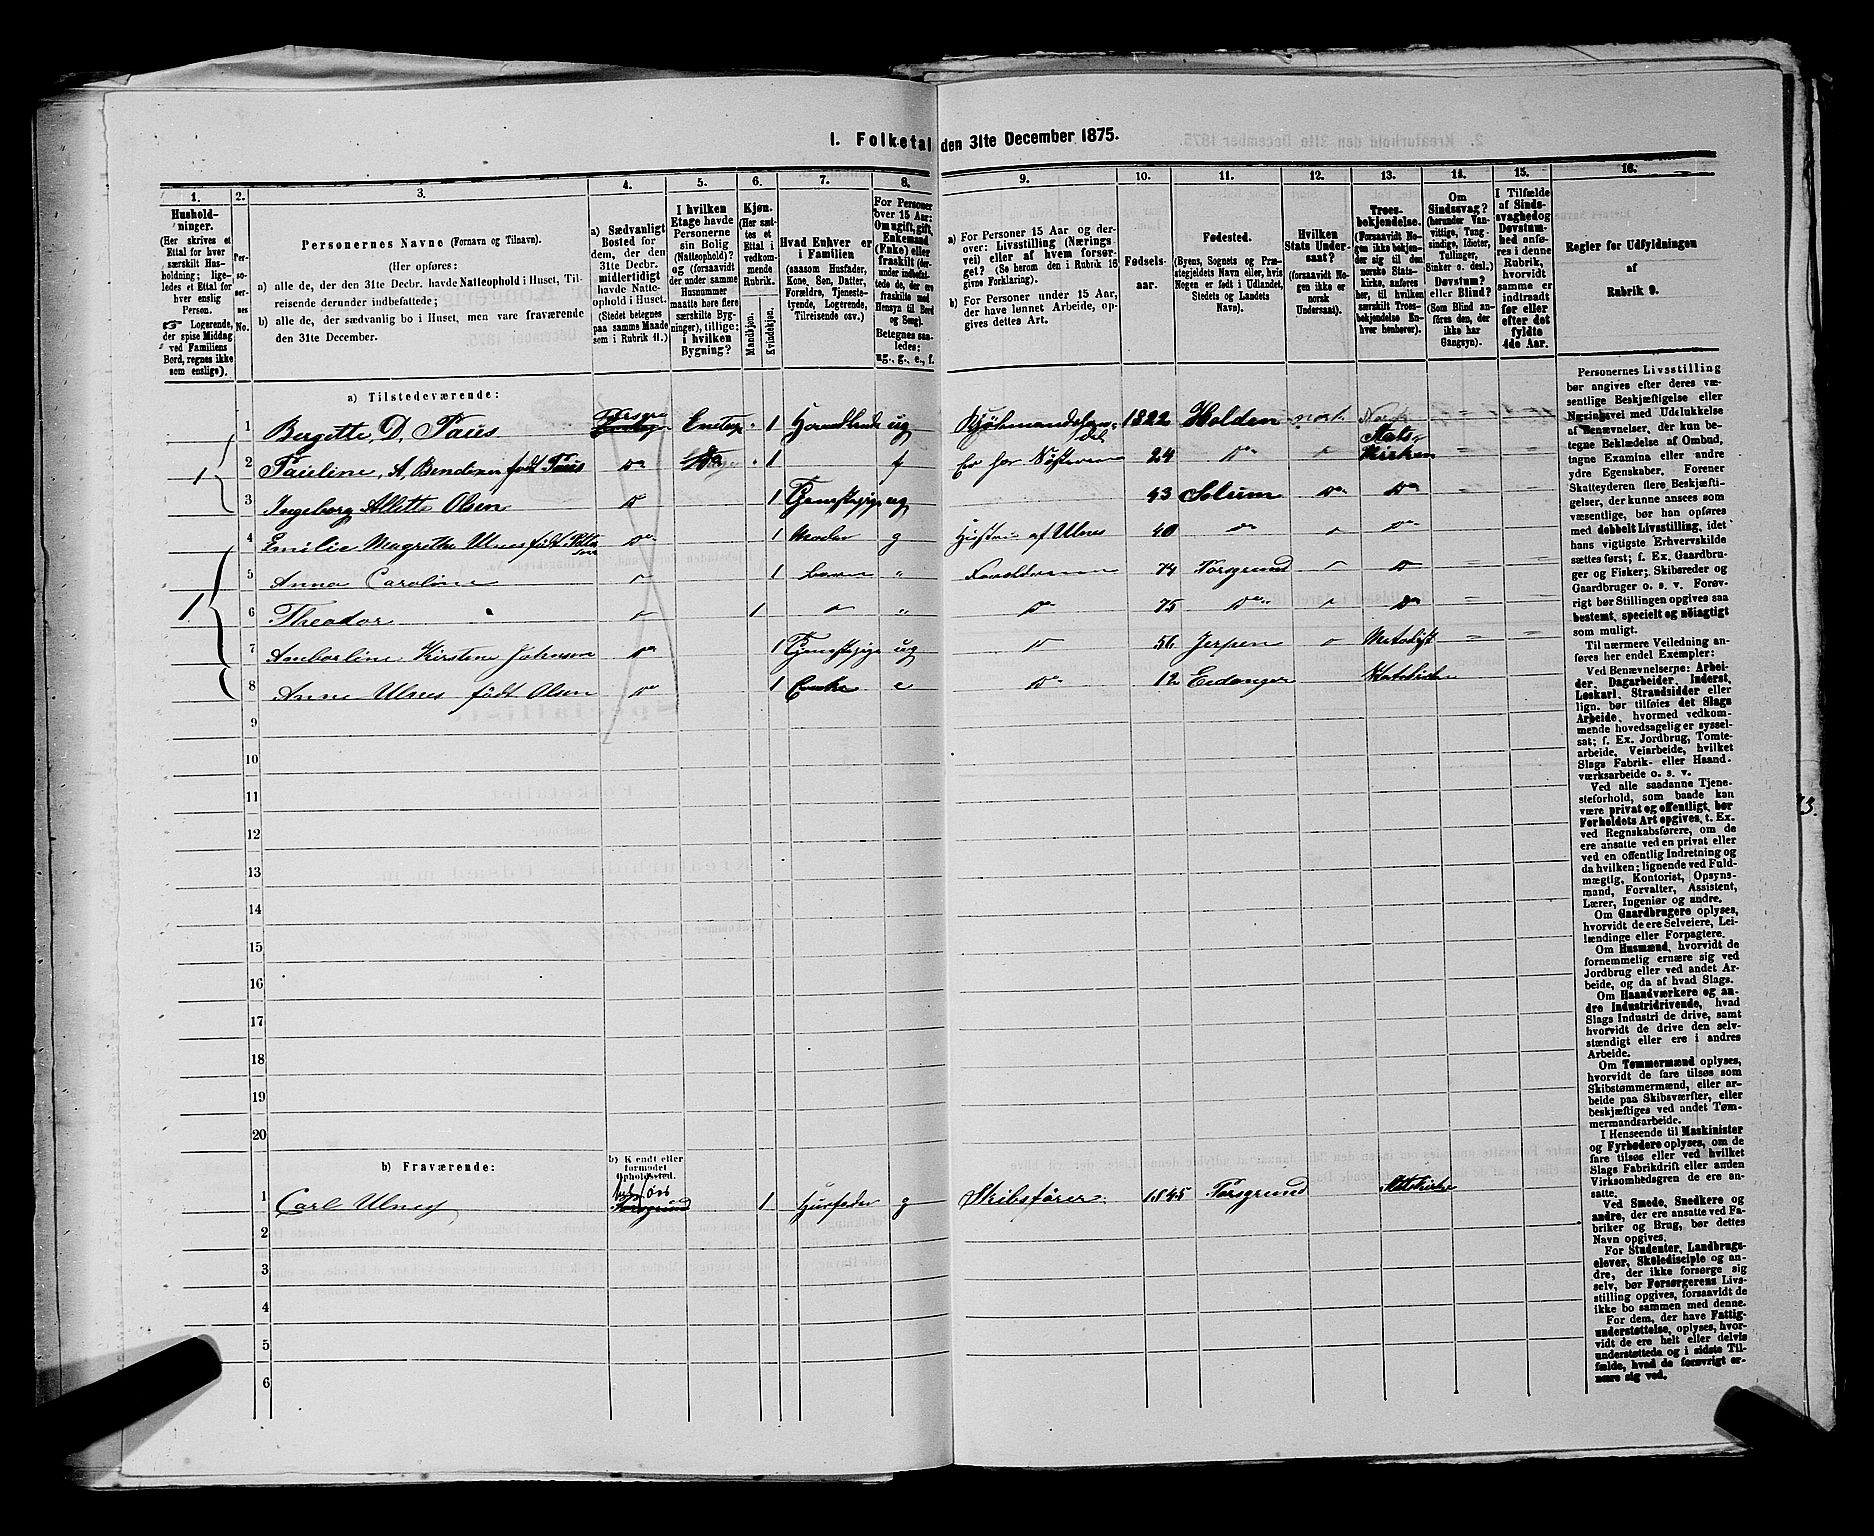 1. Folketal den 31te December 1875.
1.
Hushold-
ninger.
(Her skrives et
Ettal for hver
særskilt Hus-
holdning; lige-
ledes et Ettal for
hver enslig
Person.
Logerende,
der spise Middag
ved Familiens
Bord, regnes ikke
som enslige).
2.
Per-
so-
ner-
nes
No.
3.
Personernes Navne (Fornavn og Tilnavn).
(Her opføres:
a) alle de, der den 31te Decbr. havde Natteophold i Huset, Til-
reisende derunder indbefattede;
b) alle de, der sædvanlig bo i Huset, men vare fraværende
den 31te December.
4.
a) Sædvanligt
Bosted for
dem, der den
31te Decbr.
midlertidigt
havde Natte-
ophold i Huset.
(Stedet betegnes
paa samme Maade
som i Rubrik 11.)
5.
I hvilken
Etage havde
Personerne
sin Bolig
(Natteophold)?
og (forsaavidt
der under samme
Husnummer
maatte høre flere
særskilte Byg-
ninger), tillige:
i hvilken
Bygning?
6.
Kjøn.
(Her sæt-
tes et
Ettal i
vedkom-
mende
Rubrik.
Mandkjøn.
Kvindekjøn.
7.
Hvad Enhver er
i Familien
(saasom Husfader,
Kone, Søn, Datter,
Forældre, Tjeneste-
tyende, Logerende,
Tilreisende osv.)
8.
For Personer
over 15 Aar:
Om ugift, gift,
Enkemand
(Enke) eller
fraskilt
Betegnes saa-
ledes:
ug., g., e., f.
9.
a) For Personer 15 Aar og der-
over: Livsstilling (Nærings-
vei) eller af hvem forsør-
get? (Se herom den i Rubrik 16
givne Forklaring).
b) For Personer under 15 Aar,
der have lønnet Arbeide, op-
gives dettes Art.
10.
Fødsels-
aar.
11.
Fødested.
(Byens, Sognets og Præ-
stegjeldets Navn eller, hvis
Nogen er født i Udlandet,
Stedets og Landets
Navn).
12.
Hvilken
Stats Under-
saat?
(forsaavidt No-
gen ikke er
norsk
Undersaat).
13.
Troes-
bekjendelse.
(Forsaavidt No-
gen ikke bekjen-
der sig til den
norske Stats-
kirke, anføres
her, til hvilken
særskilt Troes-
bekjendelse En-
hver henhører).
14.
Om
Sindssvag?
(herunder Van-
vittige, Tung-
sindige, Idioter,
Tullinger,
Sinker o. desl.)
Døvstum?
eller Blind?
(Som Blind an-
føres den, der
ikke har
Gangsyn).
15.
I Tilfælde
af Sinds-
svaghed og
Døvstum-
hed anfø-
res i denne
Rubrik,
hvorvidt
samme er
indtraadt
før eller
efter det
fyldte
4de Aar.
16.
Regler for Udfyldningen
af
Rubrik 9.
a) Tilstedeværende:
1 Bergette, D. Paus 1 ug 1822 Holden norsk Norsk Stats Kirken
2 Pauline, A, Bendixen født Paus Do 1 f 24 Do
1 3 Ingeborg Allette Olsen Do 1 ug 43 Solum Do Do
4 Emilie Magrethe Ulnes født Do 1 Moder g Hustru af Ulnes 40 Do Do
5 Anna Caroline 1 Barn " Forældrene 74 Porsgrund Do
1 6 Theodor 1 " Do 75 Do Do
7 Amborline Kirstine Johnsen Do 1 ug Do 56 Jerpen Metodist
8 Anne Ulnes født Olsen Do 1 Enke e Do 12 Eidanger Statskirken
9
10
11
12
13
14
15
16
17
18
19
20
b) Fraværende:
b) Kendt eller
formodet
Opholdssted.
1 Carl Ulnes Porsgrund 1 Husfader g Skibsfører 1845 Porsgrund Statskirke
2
3
4
5
6
Personernes Livsstilling
bør angives efter deres væ-
sentlige Beskjæftigelse eller
Næringsvei med Udelukkelse
af Benævnelser, der kun be-
tegne Beklædelse af Ombud,
tagne Examina eller andre
ydre Egenskaber. Forener
Skatteyderen flere Beskjæfti-
gelser, der kunne ansees som
væsentlige, bør han opføres
med dobbelt Livsstilling, idet
hans vigtigste Erhvervskilde
sættes først; f. Ex. Gaardbru-
ger og Fisker; Skibsreder og
Gaardbruger o. s. v. Forøv-
rigt bør Stillingen opgives saa
bestemt, specielt og nøiagtigt
som muligt.
Til nærmere Veiledning an-
føres her endel Exempler:
Ved Benævnelserne: Arbei-
der, Dagarbeider, Inderst,
Løskarl, Strandsidder eller
lign. bør tilføies det Slags
Arbeide, hvormed vedkom-
mende hovedsagelig er syssel-
sat; f. Ex. Jordbrug, Tomte-
arbeide, Veiarbeide, hvilket
Slags Fabrik- eller Haand-
værksarbeide o. s. v.
Ved alle saadanne Tjene-
steforhold, som baade kan
være privat og offentligt, bør
Forholdets Art opgives, t. Ex.
ved Regnskabsførere, om de
ere ansatte ved en privat eller
ved en offentlig Indretning og
da hvilken; lignende ved Fuld-
mægtig, Kontorist, Opsyns-
mand, Forvalter, Assistent,
Lærer, Ingeniør og andre.
Om Gaardbrugere oplyses,
hvorvidt de ere Selveiere, Lei-
lændinge eller Forpagtere.
Om Husmænd, hvorvidt de
fornemmelig ernære sig ved
Jordbrug eller ved andet Ar-
beide, og da af hvad Slags.
Om Haandværkere og an-
dre Industridrivende, hvad
Slags Industri de drive, samt
hvorvidt de drive den selv-
stændigt eller ere i andres
Arbeide.
Om Tømmermænd oplyses,
hvorvidt de fare tilsøs som
Skibstømmermænd, eller ar-
beide paa Skibsværfter, eller
beskjæftiges ved andet Tøm-
mermandsarbeide.
I Henseende til Maskinister
og Fyrbødere oplyses, om de
fare tilsøs eller ved hvilket
Slags Fabrikdrift eller anden
Virksomhedsgren de ere an-
satte.
Ved Smede, Snedkere og
andre, der ere ansatte ved Fa-
briker og Brug, bør dettes
Navn opgives.
For Studenter, Landbrugs-
elever, Skoledisciple og an-
dre, der ikke forsørge sig
selv, bør Forsørgerens Livs-
stilling opgives, forsaavidt de
ikke bo sammen med denne.
For dem, der have Fattig-
understøttelse, oplyses, hvor-
vidt de ere helt eller delvis
understøttede og i sidste Til-
fælde, hvad de forøvrigt er-
nære sig ved.